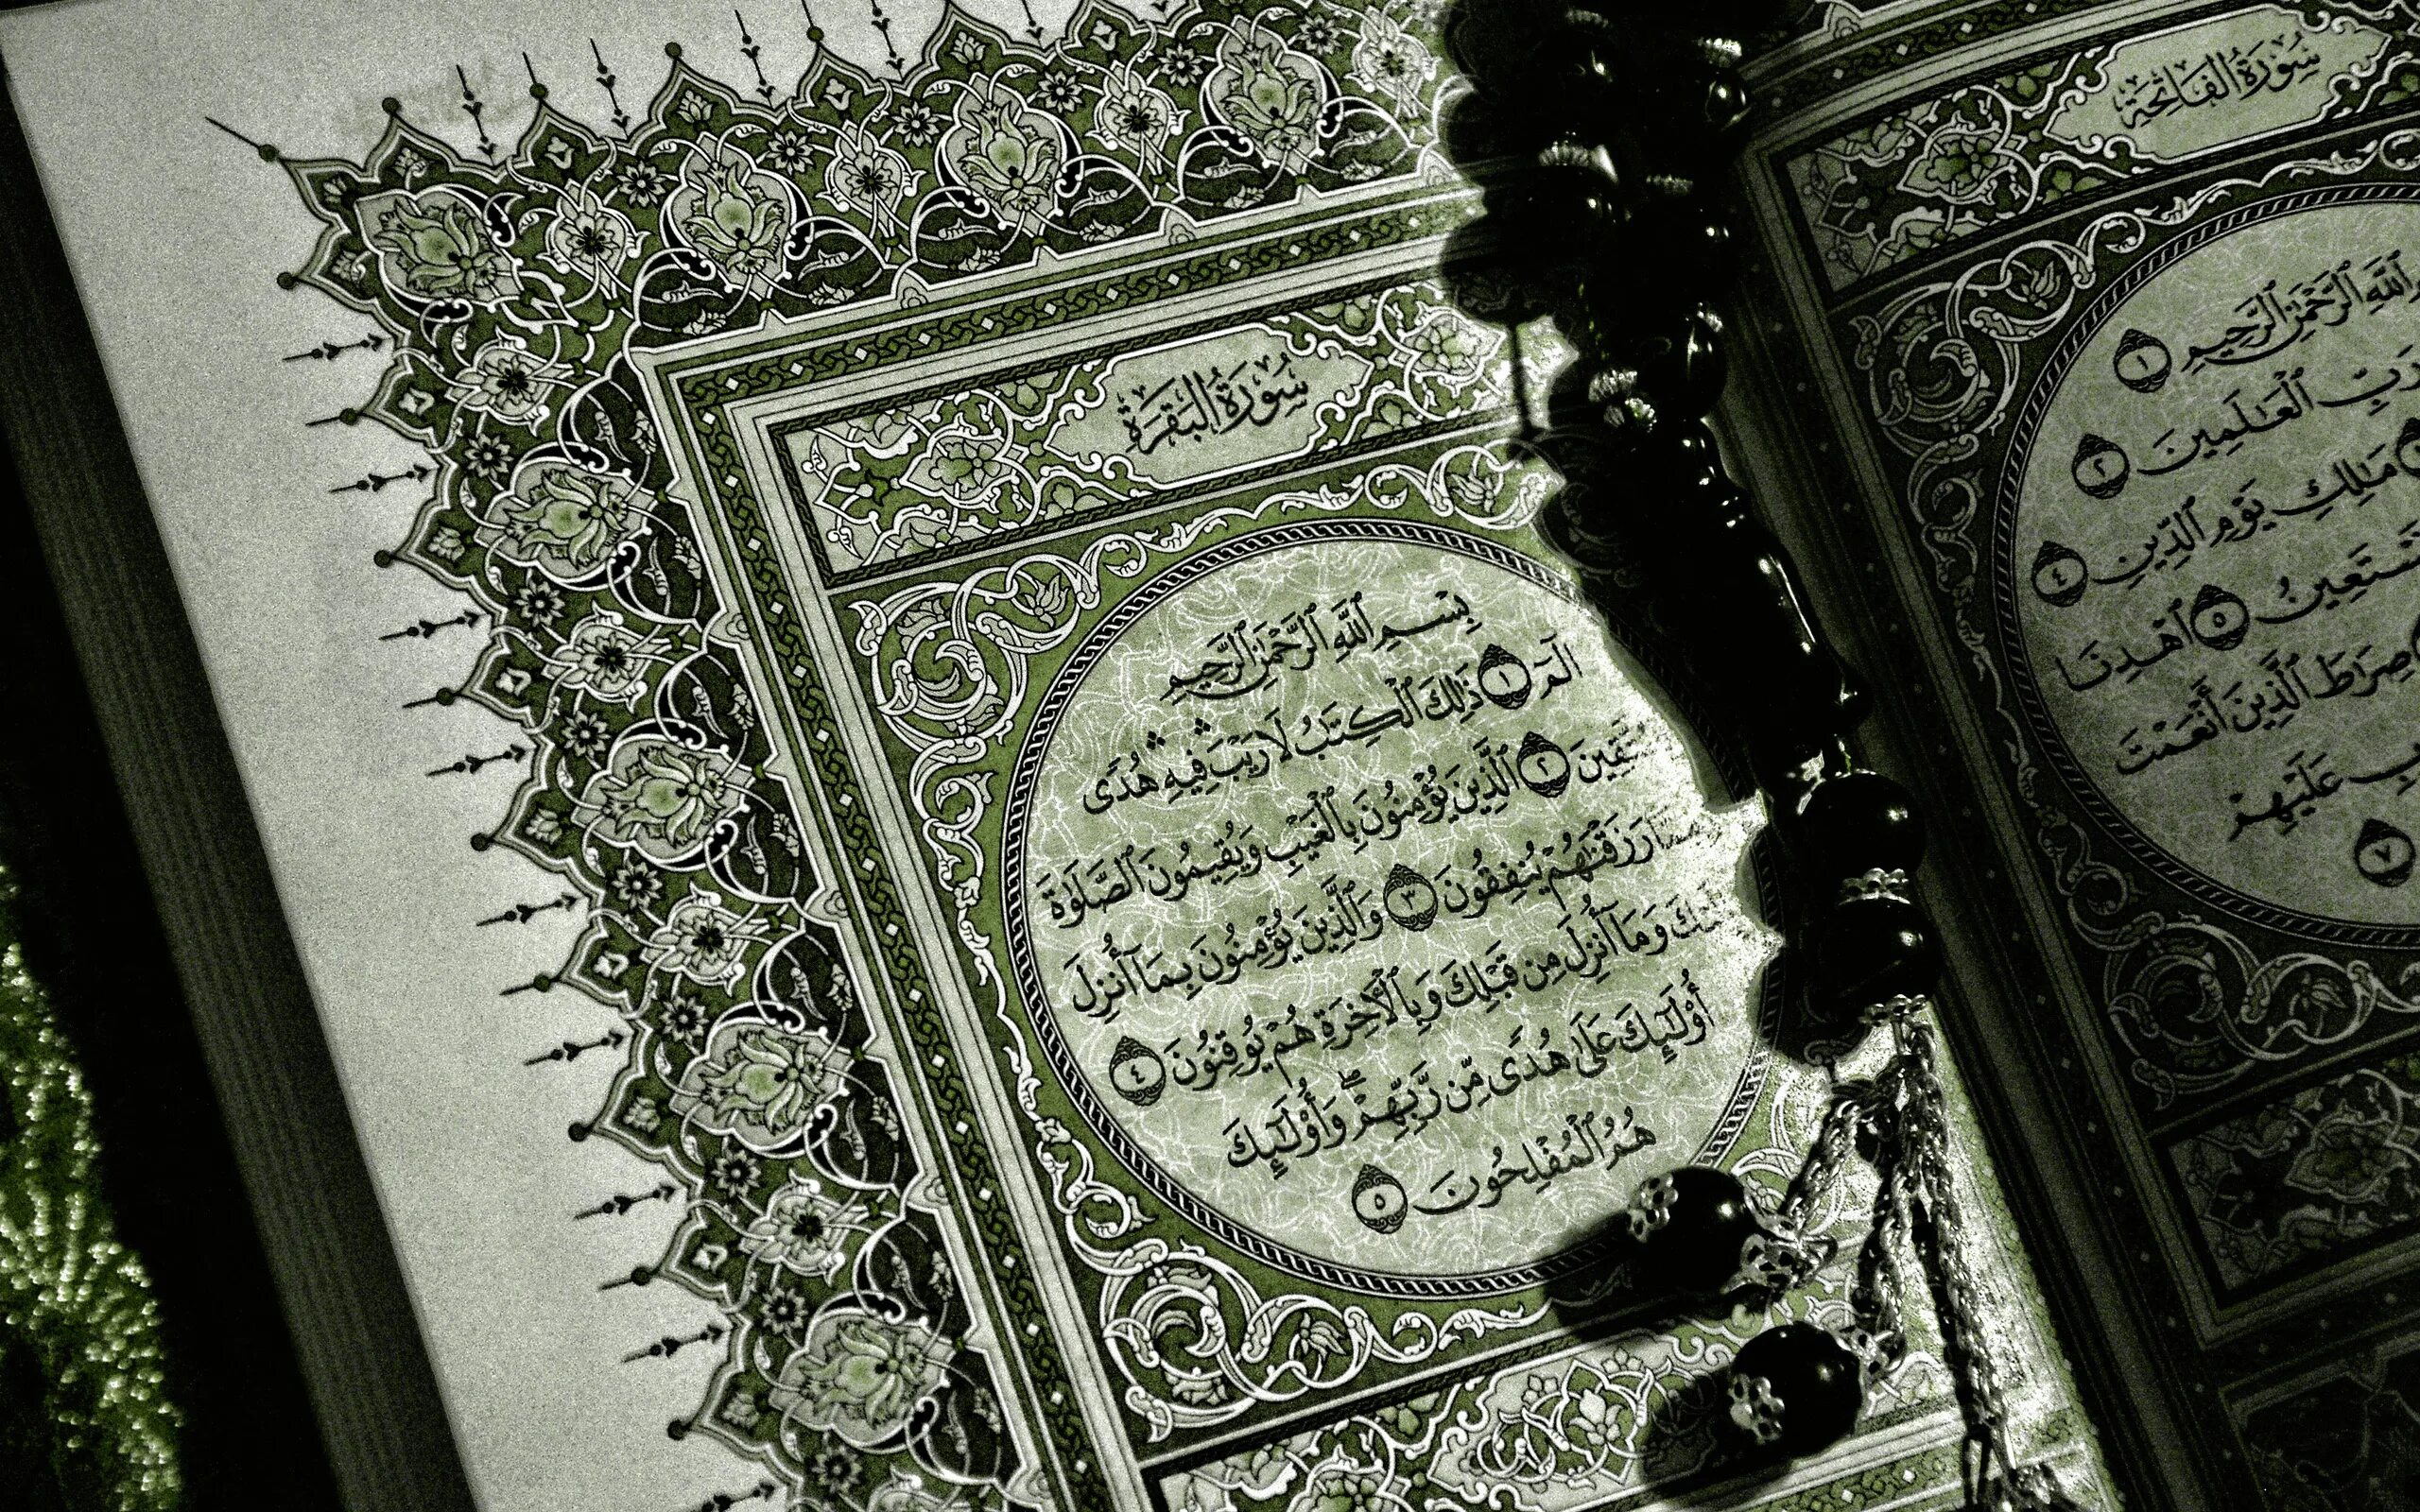 سُورَةُ الفَاتِحَةِ
ٱللَّهِ ٱلرَّحْمَٰنِ ٱلرَّحِيمِ ١
رَبِّ ٱلْعَٰلَمِينَ ٢
مَٰلِكِ يَوْمِ ٱلدِّينِ ٤
نَسْتَعِينُ ٥ ٱهْدِنَا
صِرَٰطَ ٱلَّذِينَ أَنْعَمْتَ
عَلَيْهِمْ
٧
سُورَةُ البَقَرَةِ
بِسْمِ ٱللَّهِ ٱلرَّحْمَٰنِ ٱلرَّحِيمِ
الٓمٓ ١ ذَٰلِكَ ٱلْكِتَٰبُ لَا رَيْبَۛ فِيهِۛ هُدًى
٢ ٱلَّذِينَ يُؤْمِنُونَ بِٱلْغَيْبِ وَيُقِيمُونَ ٱلصَّلَوٰةَ
رَزَقْنَٰهُمْ يُنفِقُونَ ٣ وَٱلَّذِينَ يُؤْمِنُونَ بِمَآ أُنزِلَ
وَمَآ أُنزِلَ مِن قَبْلِكَ وَبِٱلْأَخِرَةِ هُمْ يُوقِنُونَ ٤
أُو۟لَٰٓئِكَ عَلَىٰ هُدًى مِّن رَّبِّهِمْۖ وَأُو۟لَٰٓئِكَ
هُمُ ٱلْمُفْلِحُونَ ٥